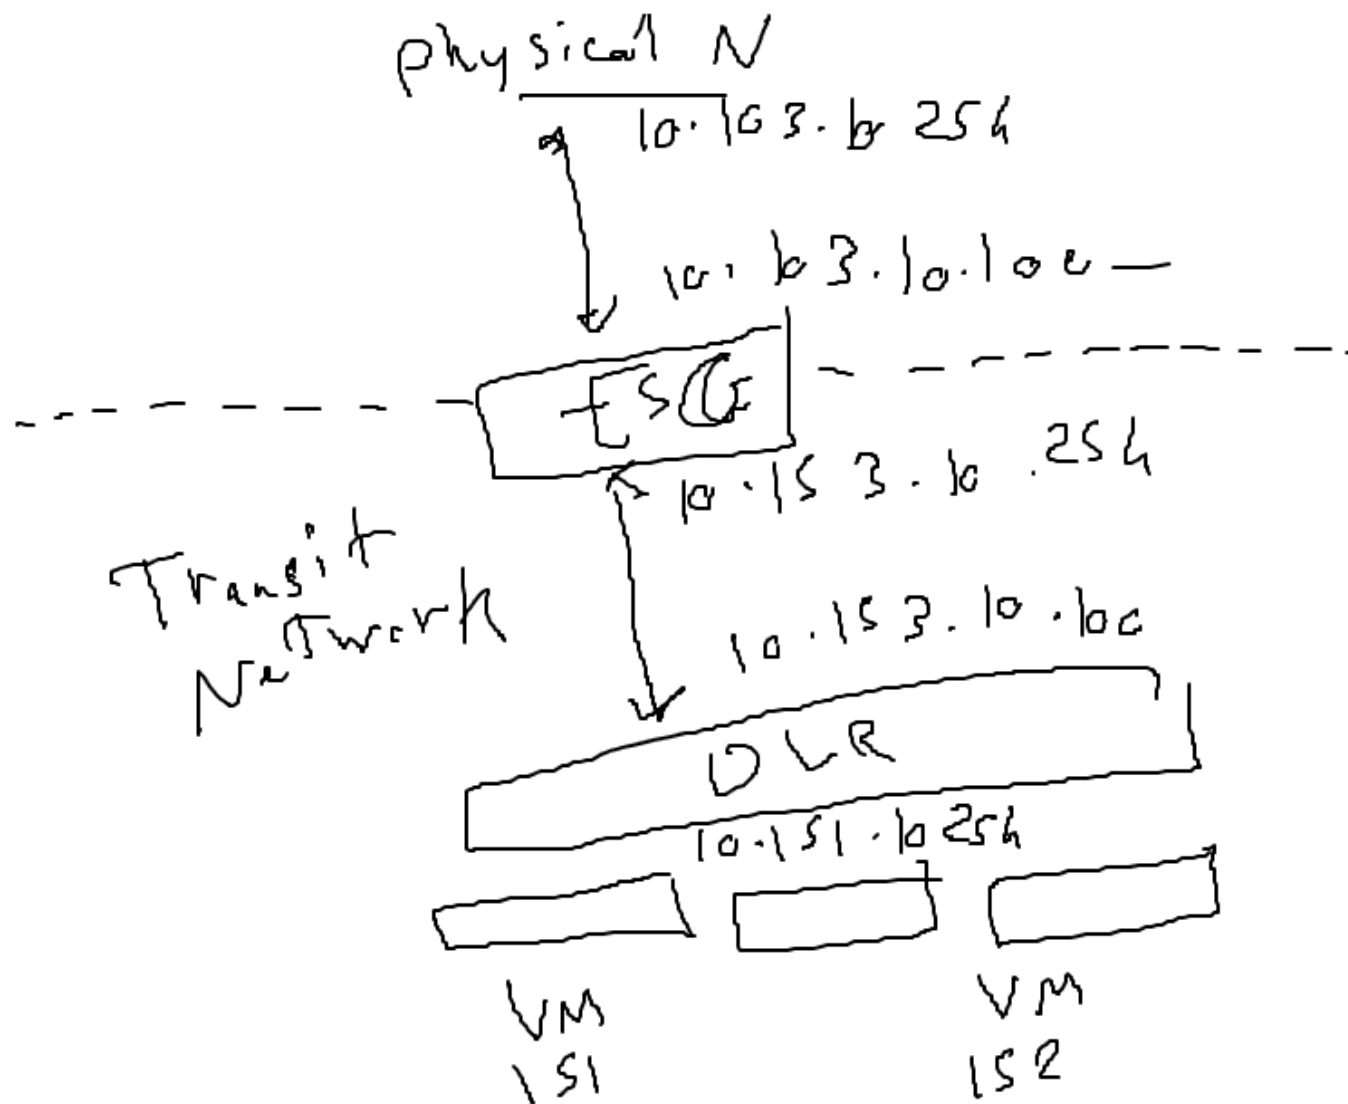 Physical N
10.103.10 254
10.103.10.100
ESG
10.153.10.254
Transit
Network
10.153.10.100
DLR
10.151.10 254
VM
151
VM
152